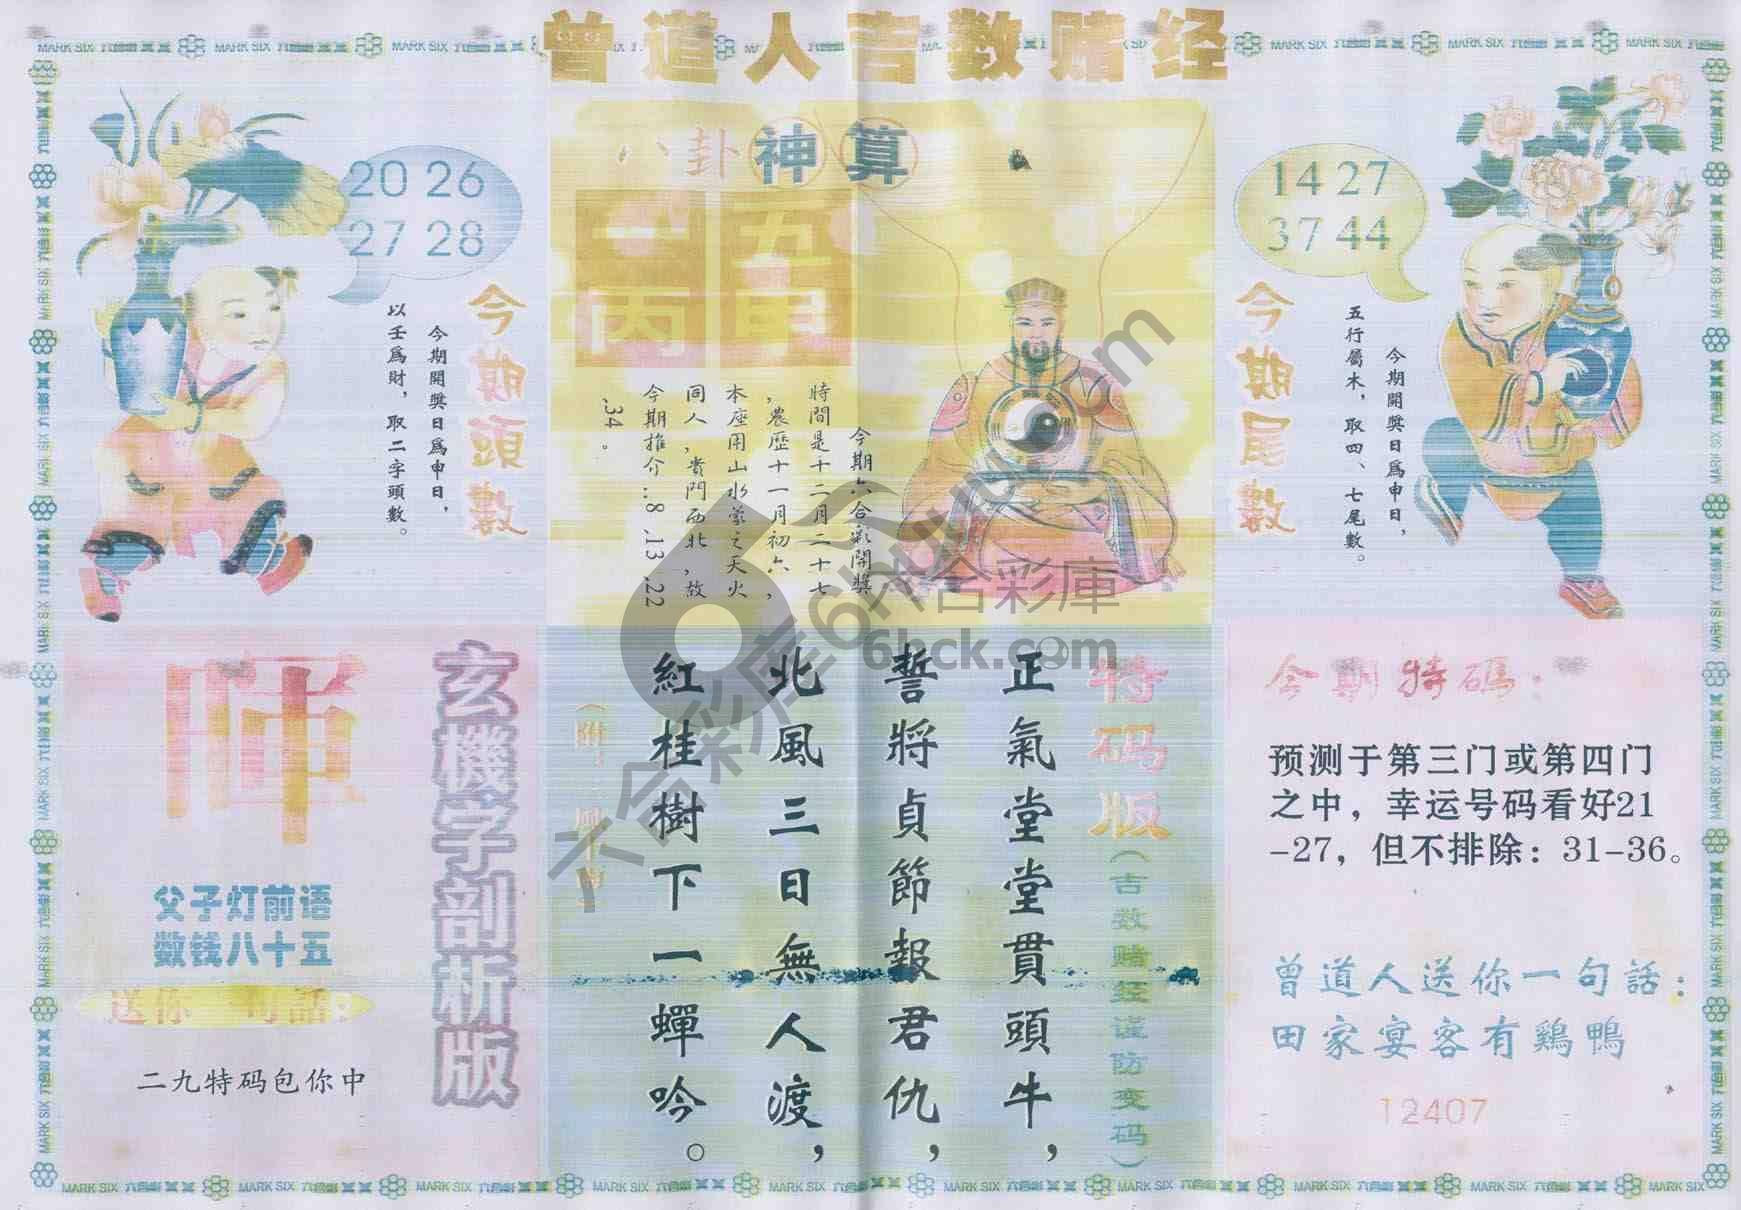 曾道人吉数赌经
八卦神算
20 26
27 28
今期頭數
今期開獎日爲申日，
以壬爲財，取二字頭數。
今期六合彩開獎
時間是十二月二十七
，農歷十一月初六，
本座用山水蒙之天火
同人，貴門西北，故
今期推介..8 .13 .22
.34 。
14 27
37 44
今期尾數
今期開獎日爲申日，
五行屬木，取四、七尾數。
玄機字剖析版
暉
父子灯前语
数钱八十五
送你一句話：
二九特码包你中
特码版
（吉数赌经谨防变码）
正氣堂堂貫頭牛，
誓將貞節報君仇，
北風三日無人渡，
紅桂樹下一蟬吟。
今期特碼：
预测于第三门或第四门
之中，幸运号码看好21
-27，但不排除：31-36。
曾道人送你一句話：
田家宴客有鷄鴨
12407
MARK SIX 六合彩
六合彩库 6hcku.com
六合彩庫
6hck.com